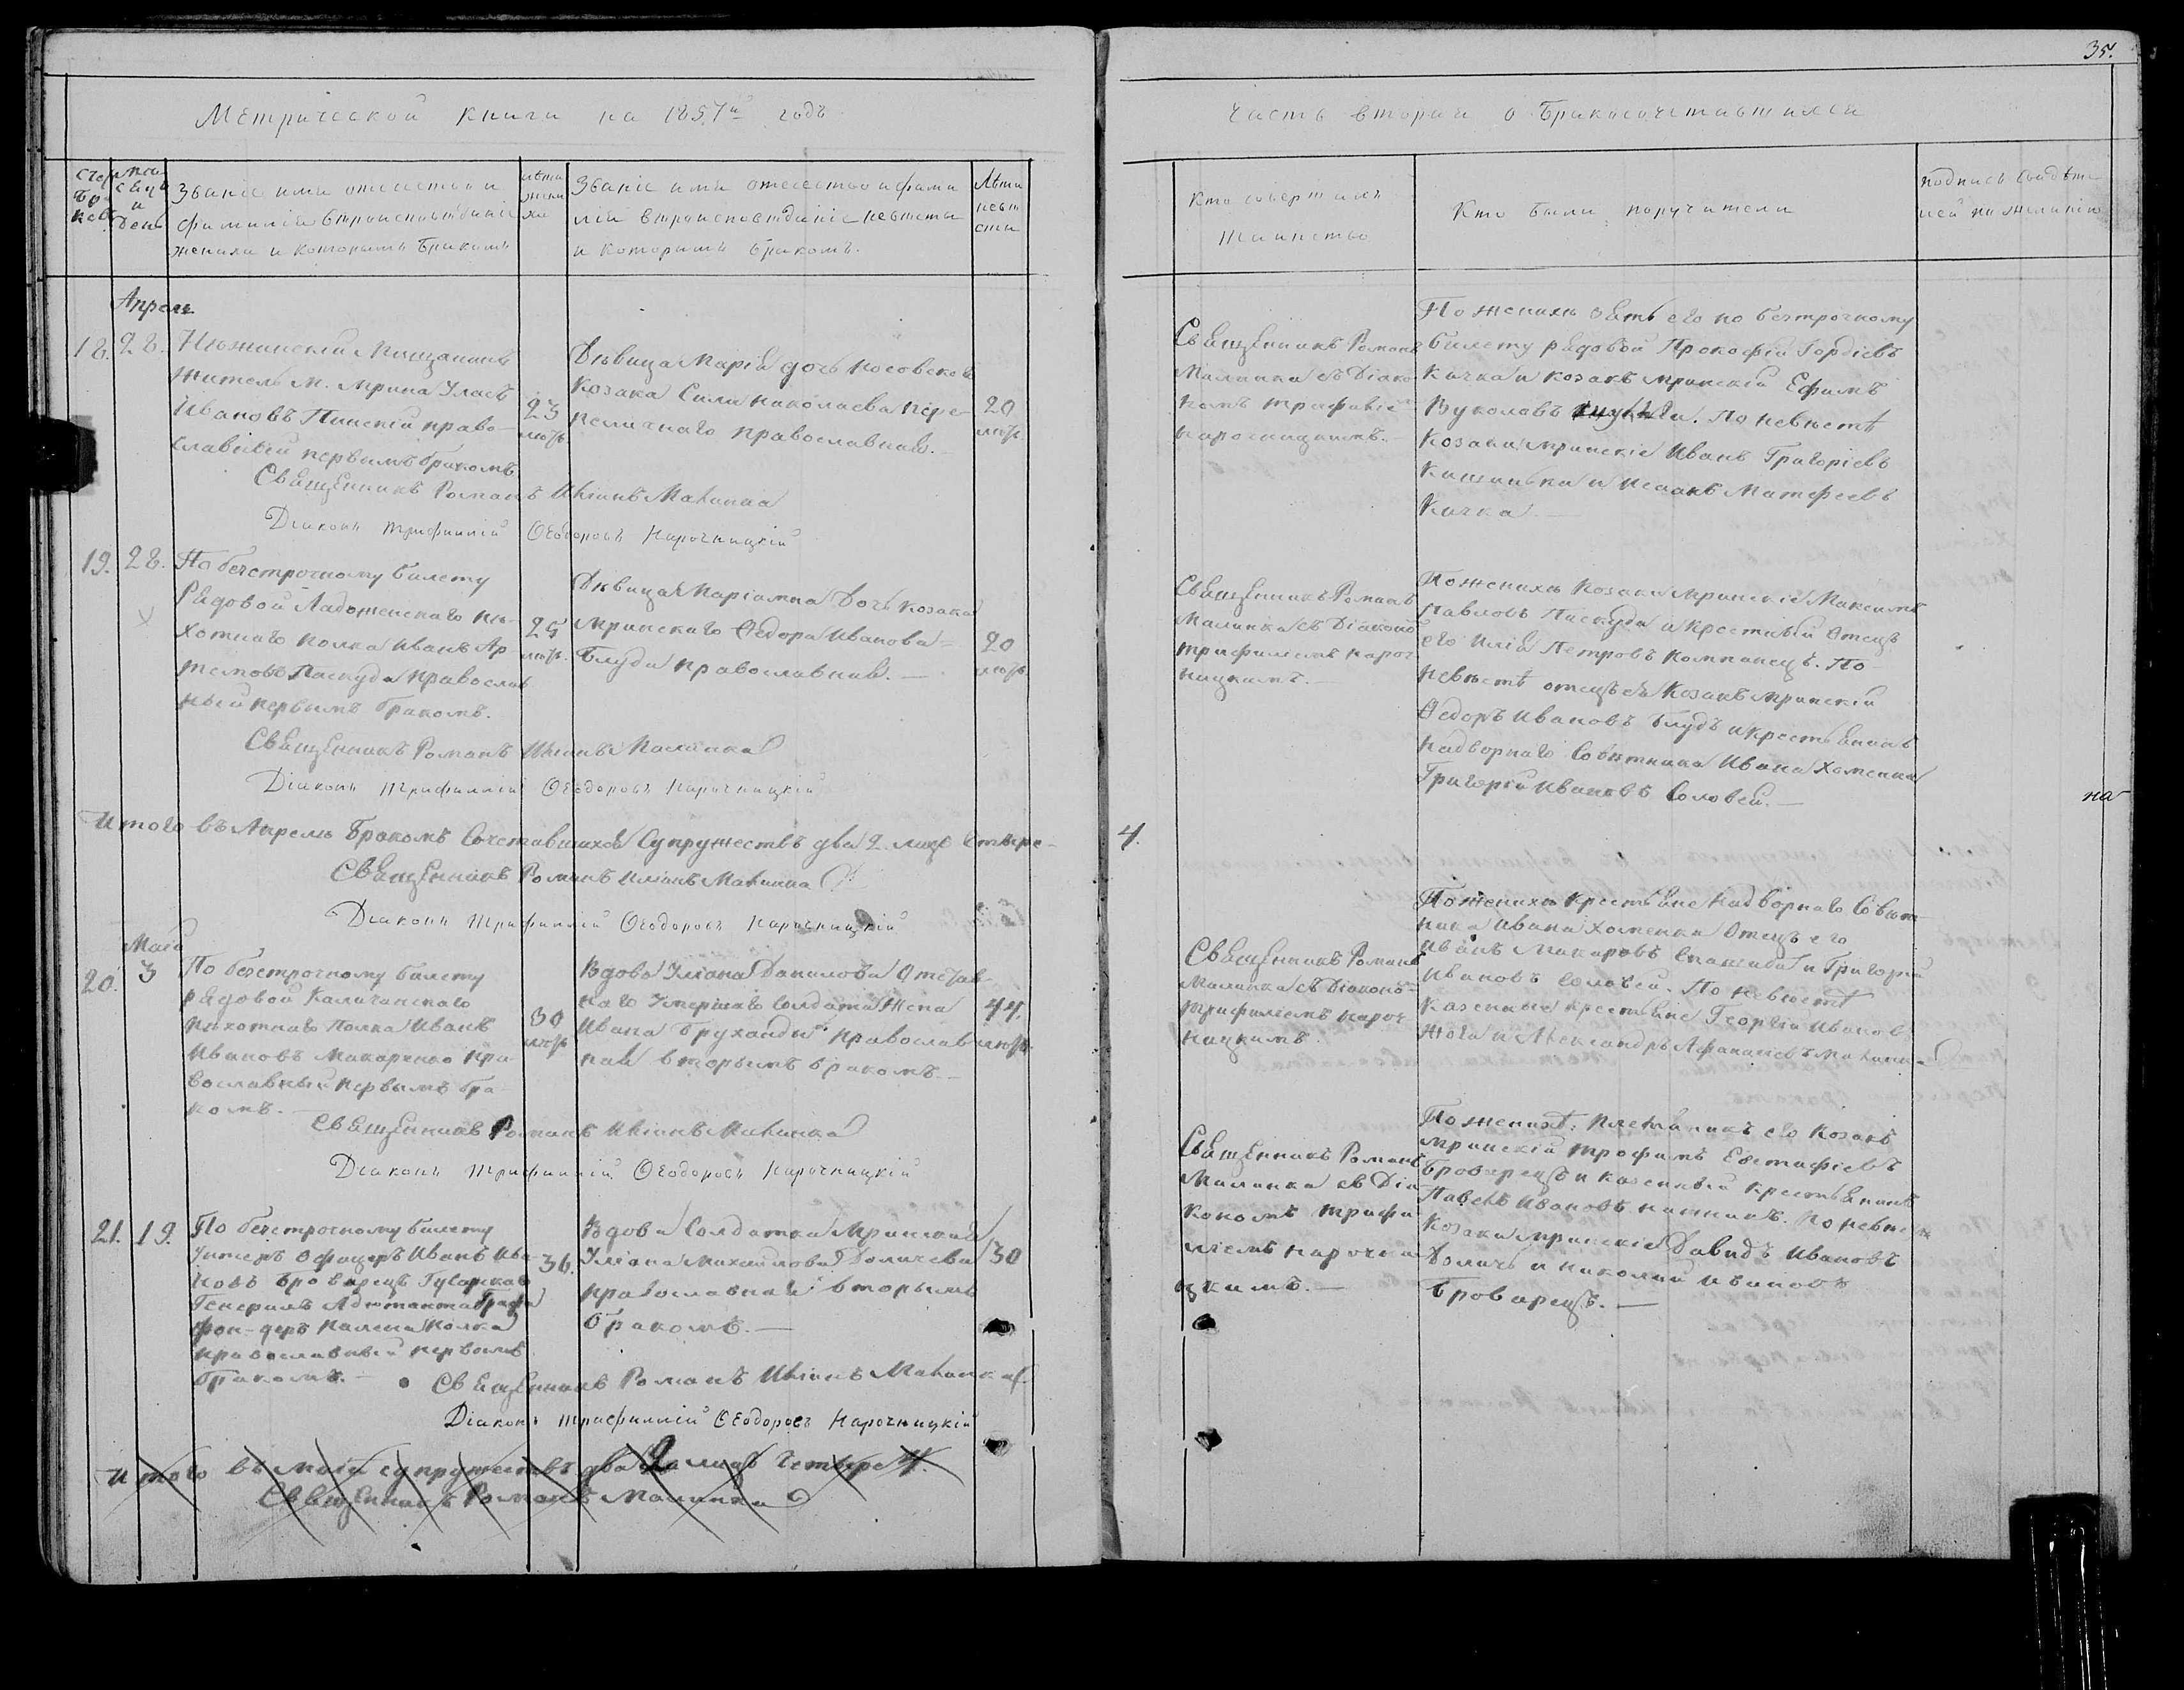 35.
Метрической книги на 1857й годъ
Часть вторая о Бракосочетавшихся
Счетъ Бра-ковъ
Месяцъ и День
Званіе имя отечество и
фамилія вероисповѣданіе
жениха и которымъ бракомъ
лѣта жени ха
Званіе имя отечество и фами
лія вероисповѣданіе невѣсты
и которымъ бракомъ.
Лѣта невѣ сты
Кто совершалъ
таинство
Кто были поручители
подпись свидѣте-
лей по желанію
Апрель
18. 28.
Нѣжинскій Мищанинъ
житель М. Мрина Уласъ
Ивановъ Пинскій право-
славный первымъ бракомъ
23
лѣтъ
Дѣвица Марія дочь Носовскаго
Козака Силы Николаева Пере-
пеличнаго православная.
20
лѣтъ
Священникъ Романъ
Малинка съ Діако
номъ Трифиліемъ
Нарочницкимъ.
По женихѣ зять его по безсрочному
билету рядовой Прокофій Гордіевъ
Качка и козакъ мринскій Ефимъ
Вуколовъ По невѣстѣ
Козаки мринскіе Иванъ Григоріевъ
и Исаакъ Матфеевъ
Качка.
Священникъ Романъ Иліинъ Малинка
Діаконъ Трифиллій Ѳеодоровъ Нарочницкій
19. 28.
По безсрочному билету
Рядовой Ладожскаго пѣ-
хотнаго полка Иванъ Ар
темовъ Паскуда православ
ный первымъ бракомъ.
25
лѣтъ.
Дѣвица Маріамна дочь козака
мринскаго Ѳедора Иванова
Блуда православная.
20
лѣтъ
Священникъ Романъ
Малинка съ Діакономъ
Трифиліемъ Нароч-
ницкимъ.
По женихѣ Козаки мринскіе Максимъ
Павловъ Паскуда и крестный отецъ
его Илія Петровъ Компанецъ. По
невѣстѣ отецъ ея Козакъ мринскій
Ѳедоръ Ивановъ Блудъ и крестьянинъ
надворнаго Совѣтника Ивана Хоменка
Григорій Ивановъ Соловей.
на
Священникъ Романъ Иліинъ Малинка
Діаконъ Трифиллій Ѳеодоровъ Нарочницкій
Итого въ Апрелѣ бракомъ Сочетавшихся Супружествъ два 2. лицъ четыре- 4.
Священникъ Романъ Иліинъ Малинка
Діаконъ Трифиллій Ѳеодоровъ Нарочницкій
Мая
20. 3
По безсрочному билету
рядовой
пѣхотнаго Полка Иванъ
Ивановъ Макаренко пра
вославный первымъ бра-
комъ.
30
лѣтъ
Вдова Уліана Данилова отстав-
наго Умершаго Солдата жена
Ивана Бруханды православ
ная вторымъ бракомъ.
44.
лѣтъ
Священникъ Романъ
Малинка съ Діаконо-
Трифиліемъ Нароч-
ницкимъ.
По женихѣ крестьяне надворнаго Совѣт-
ника Ивана Хоменка Отецъ его
Иванъ Макаровъ и Григорій
Ивановъ Соловей. По невѣстѣ
Казенные крестьяне Георгій Иванов
и Александръ Афанасіевъ
Священникъ Романъ Иліинъ Малинка
Діаконъ Трифиллій Ѳеодоровъ Нарочницкій
21. 19.
По безсрочному билету
Унтеръ Офицеръ Иванъ Ива-
новъ Броварецъ Гусарскаго
Генералъ Адютанта Графа
фон-деръ Палена Полка
православный первымъ
бракомъ.
36.
Вдова Солдатка Мринская
Уліана Михайлова Доличева
православная вторымъ
бракомъ.
30
Священникъ Романъ
Малинка съ Діа
кономъ Трифи
ліемъ Нарочни
цкимъ.
По женихѣ: племянникъ его Козакъ
мринскій Трофимъ Евстафіевъ
Броварецъ и казенный крестьянинъ
Павелъ Ивановъ По невѣстѣ
Козаки мринскіе Давидъ Ивановъ
Доличъ и Николай Ивановъ
Броварецъ.
Священникъ Романъ Иліинъ Малинка
Діаконъ Трифиллій Ѳеодоровъ Нарочницкій
Итого въ маіи супружествъ два 2 лицъ четыре 4.
Священникъ Романъ Малинка